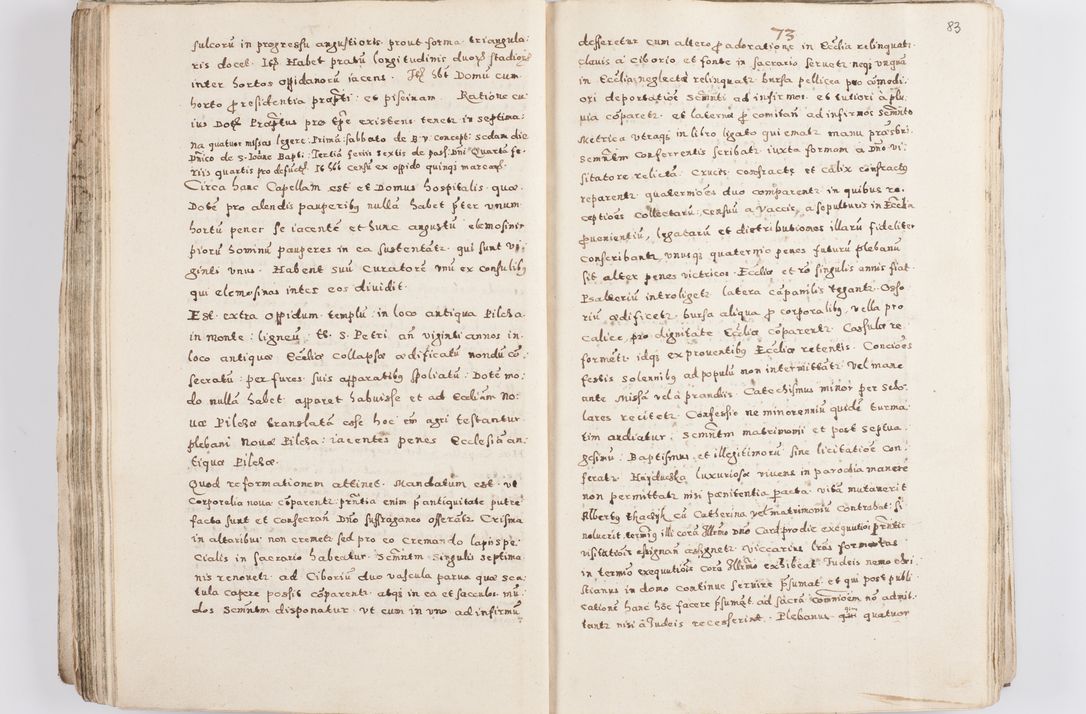 sulcorũ in progressu angustioris prout forma triangula:
ris docet. Itẽ Habet pratũ longitudinis duorũ stadiorũ
inter hortos oppidanorũ iacens. Itẽ hbt Domũ cum
horto p̱ residentia præpti: et piscinam. Ratione cu
ius Dotis Præptus pro tp̃e existens tenetr in septima:
na quatuor missas legere. Primã: sabbato de B. v: concept: Secdam die
Dñico de S. Ioãne Bapti: Tertiã feriis sextis de pass. Dñi Quartã fe:
riis quartis pro defuctis. It hbt censũ ex oppido quinqȝ marcarũ.
Circa hanc Capellam est et Domus hospitalis quæ
Dotẽ pro alendis pauperibȝ nullã habet p̱ter vnum
hortũ penes se iacentẽ et hunc angustũ elemosinis
piorũ hominũ pauperes in ea sustentãtr qui sunt vi:
ginti vnus. Habent suũ Curatorẽ vnũ ex consulibȝ
qui elemosinas inter eos dividit.
Est extra oppidum templũ in loco antiqua Pilcha
in monte: ligneũ, tt. S. Petri añ viginti annos in.
loco antiquæ Ecclæ collapsæ ædificatũ nondũ cõ.
secratũ: per fures suis apparatibȝ spoliatũ: Dotẽ mo:
do nullã habet apparet habuisse et ad Eccliam No:
uæ Pilchæ translatã esse hoc eĩ agri testantur
plebani Nouæ Pilcha: iacentes penes Ecclesiã an
tiquæ Pilchæ.
Quod reformationem attinet. Mandatum est. vt
Corporalia noua cõparentr pñtia enim p̱ antiquitate putre
facta sunt et consecrañ Dño suffraganeo offerãtr Crisma
in altaribus non cremetr sed pro eo cremando lapis spe.
Cialis in sacrario habeatur. Scñtm Singulis septima
nis renouetr ad Ciborium duo vascula parua quæ sca
tula capere possit cõparentr atqȝ in ea et sacculos mũ.
dos Scmñtm disponatur. vt cum in vno ad infirmũ
73
83
defferetur cum altero p̱ adoratione in Ecclia relinquatr
clauis a ciborio et fonte in sacrario seruetr neqȝ vnquã
in Ecclia neglecta relinquatr bursa pellicea pro cõmodi:
ori deportatiõe Scmñti ad infirmos et tutiori a plu
uia cõparetr et laterna p̱ comitañ ad infirmos Scmñto
Metrica vtraqȝ in libro ligato qui ematr manu præsbri.
Scmñtm conferrentis scribatr iuxta formam a Dño vi
sitatore relictã Crucis confractæ et calix confractȝ
reparentr quaterniões duo comparentr in quibus re
ceptiões collectarũ, censuũ a vaccis, a sepulturis in Ecclia
p̱uenientiũ, legatarũ et distributiones illarũ fideliter
conscribantr, vnusqȝ quaternio penes futurũ plebanũ
sit alter penes victricos. Eccliæ et rõ singulis annis fiat.
Psalteriũ introligetr latera cãpanilis tegantr Osso
riũ ædificetr bursa aliqua p̱ corporalibȝ, vella pro
calice, pro dignitate Eccliæ cõparetr Casulæ re
formẽtr idqȝ ex prouentibȝ Eccliæ retentis. Conciões
festis solennibȝ ad populũ non intermittãtr vel mane
ante Missã vel a prandiis Catechismus minor per scho
lares recitetr Confessio ne minorenniũ quidẽ turma
tim audiatur, Scmñtm matrimonii et post septua
gesimũ: Baptismus et illegitimorũ sine licitatiõe con
feratr Haÿduczka luxuriosæ viuens in parochia manere
non permittatr nisi pænitentia pacta vitã mutauerit
Albertȝ thaczyk cũ Catherina vel matrimoniũ contrahat: si
noluerit, terminȝ illi corã Illmo Dño Card pro die exequutiõi pñtis
visitatiõis assignañ assignetr Viccarius lras formatas
in termio exequutiõis corã Illmo exhibeat Iudeis nemo chri.
stianus in domo continue seruire p̱sumat et qui post publi.
catione hanc hõc facere p̱sumpt. ad sacrã comniõem nõ admit.
tantr nisi â Iudeis recesserint. Plebanus quatuor